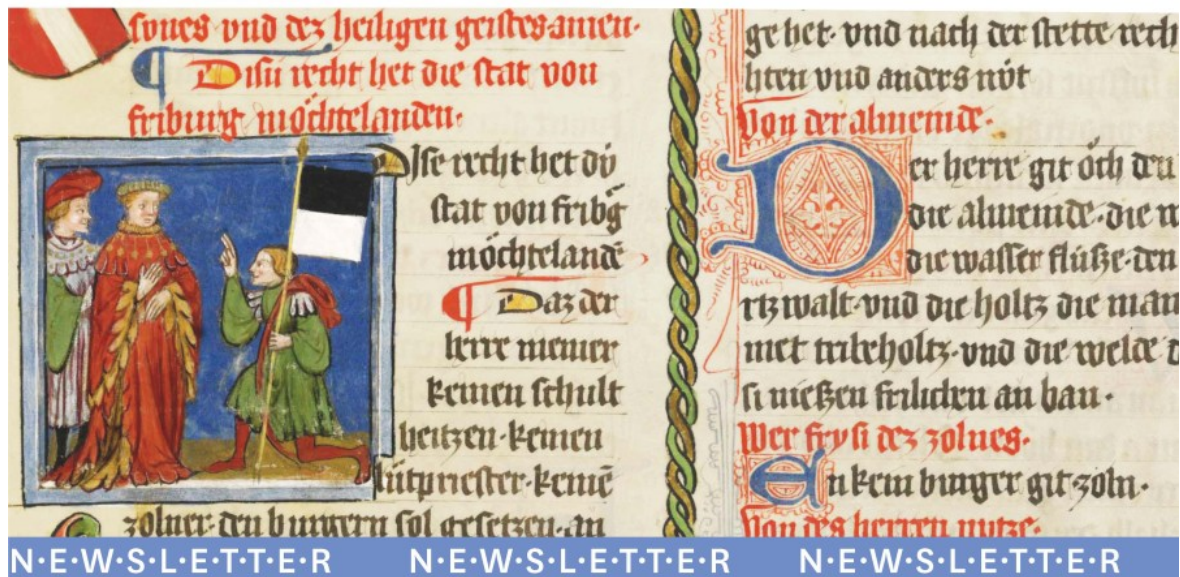 sones vnd dez heiligen geistes amen·
Disu recht het die stat von
friburg möchtelanden·
Ise recht het dü
stat von fribg
möchtelande
Daz der
herre niemer
keinen schult
heitzen·keinen
lütpriester·keinē
zolner·den burgern sol gesetzen·an
ge het·vnd nach der stette rech
hten vnd anders nüt
Von der almeinde·
Der herre git öch den
die almeinde·die
die wasser flüße·den
rtz walt·vnd die holtz die man
met tribeholtz·vnd die welde d
si nießen frilichen an ban·
Wer fry si dez zolnes·
Enkein burger git zoln·
Von des herren nutze·
N·E·W·S·L·E·T·T·E·R N·E·W·S·L·E·T·T·E·R N·E·W·S·L·E·T·T·E·R